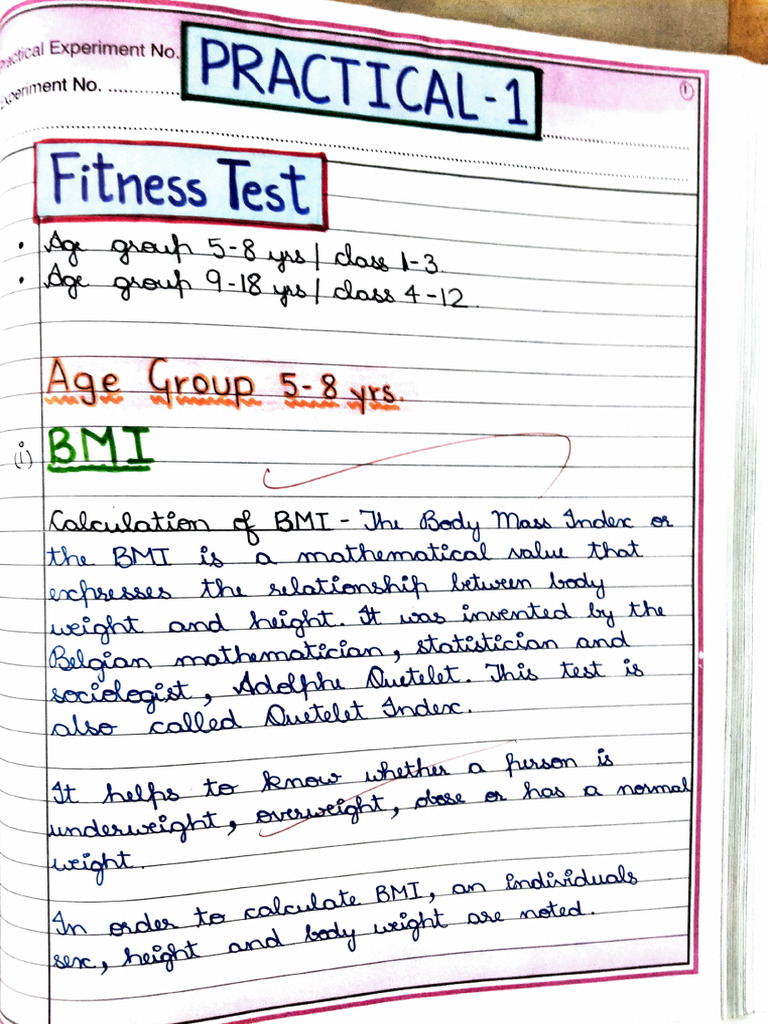 Practical Experiment No.
PRACTICAL-1
1
Experiment No. ..............
Fitness Test
• Age group 5-8 yrs | class 1-3.
• Age group 9-18 yrs | class 4-12.
Age Group 5-8 yrs.
(i) BMI
Calculation of BMI - The Body Mass Index or
the BMI is a mathematical value that
expresses the relationship between body
weight and height. It was invented by the
Belgian mathematician, statistician and
sociologist, Adolphe Quetelet. This test is
also called Quetelet Index.
It helps to know whether a person is
underweight, overweight, obese or has a normal
weight.
In order to calculate BMI, an individuals
sex, height and body weight are noted.